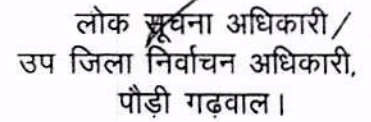 लोक सूचना अधिकारी/
उप जिला निर्वाचन अधिकारी,
पौड़ी गढ़वाल।